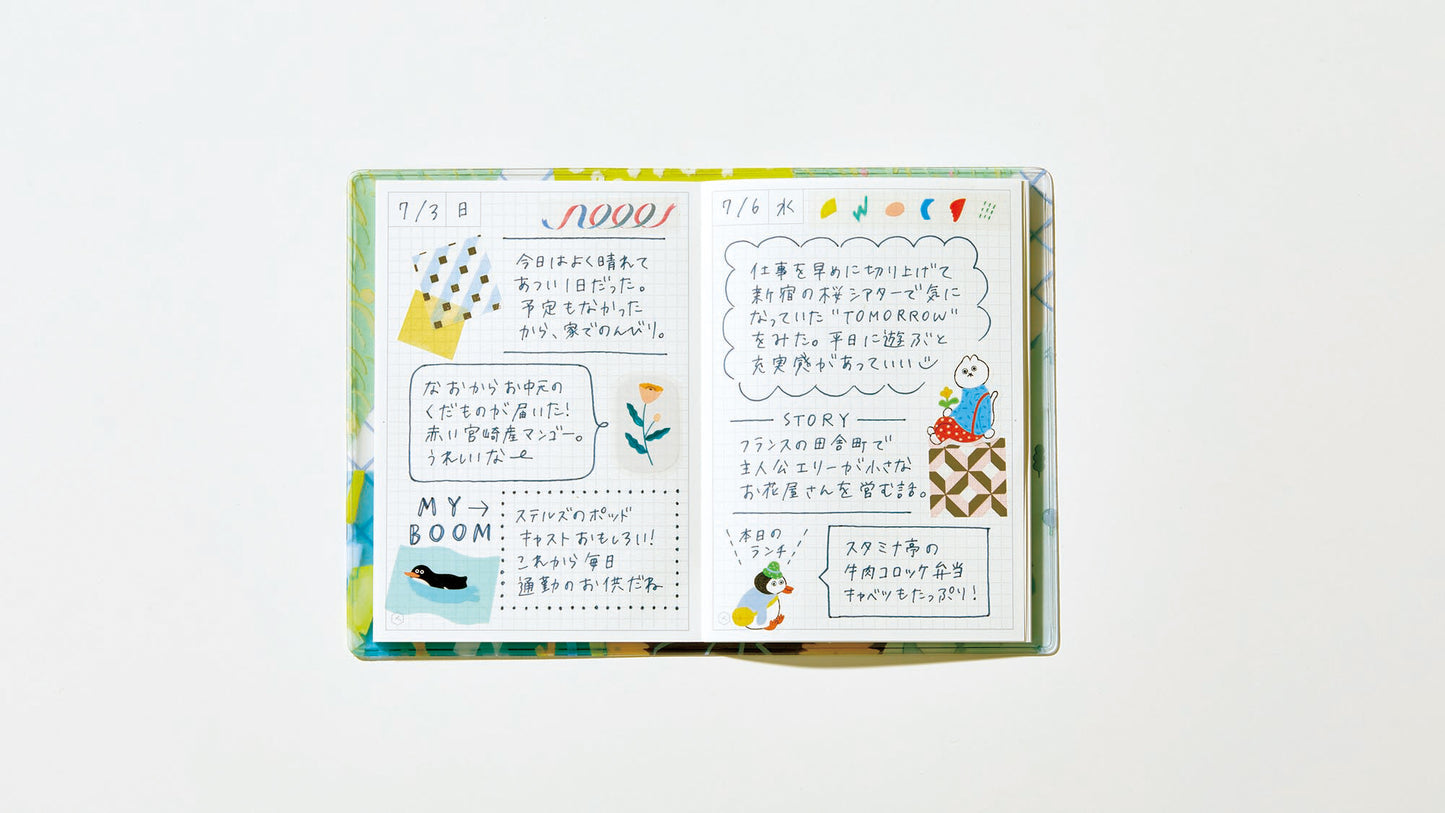 7/3 日
今日はよく晴れて
あつい1日だった。
予定もなかった
から、家でのんびり。
なおからお中元の
くだものが届いた!
赤い宮崎産マンゴー。
うれしいなー
MY→
BOOM
ステルズのポッド
キャストおもしろい!
これから毎日
通勤のお供だね
7/6 水
仕事を早めに切り上げて
新宿の桜シアターで気に
なっていた"TOMORROW"
をみた。平日に遊ぶと
充実感があっていい
STORY
フランスの田舎町で
主人公エリーが小さな
お花屋さんを営む話。
本日の
ランチ
スタミナ亭の
牛肉コロッケ弁当
キャベツもたっぷり!